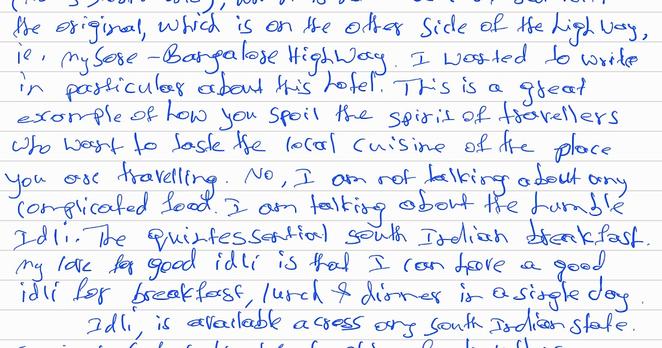 the original, which is on the other side of the highway,
ie. mysore - Bangalore HighWay. I wanted to write
in particular about this hotel. This is a great
example of how you spoil the spirit of travellers
who want to taste the local cuisine of the place
you are travelling. No, I am not talking about any
complicated food. I am talking about the humble
Idli. The quintessential south Indian breakfast.
my love for good idli is that I can have a good
idli for breakfast, lunch & dinner in a single day.
Idli, is available across any South Indian state.